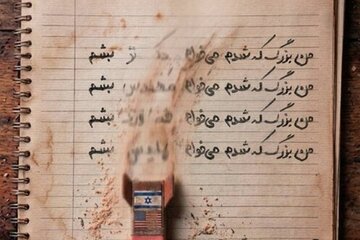 من بزرگ که شدم می‌خوام بشم
من بزرگ که شدم می‌خوام مهندس بشم
من بزرگ که شدم می‌خوام بشم
من بزرگ که شدم می‌خوام پلیس بشم